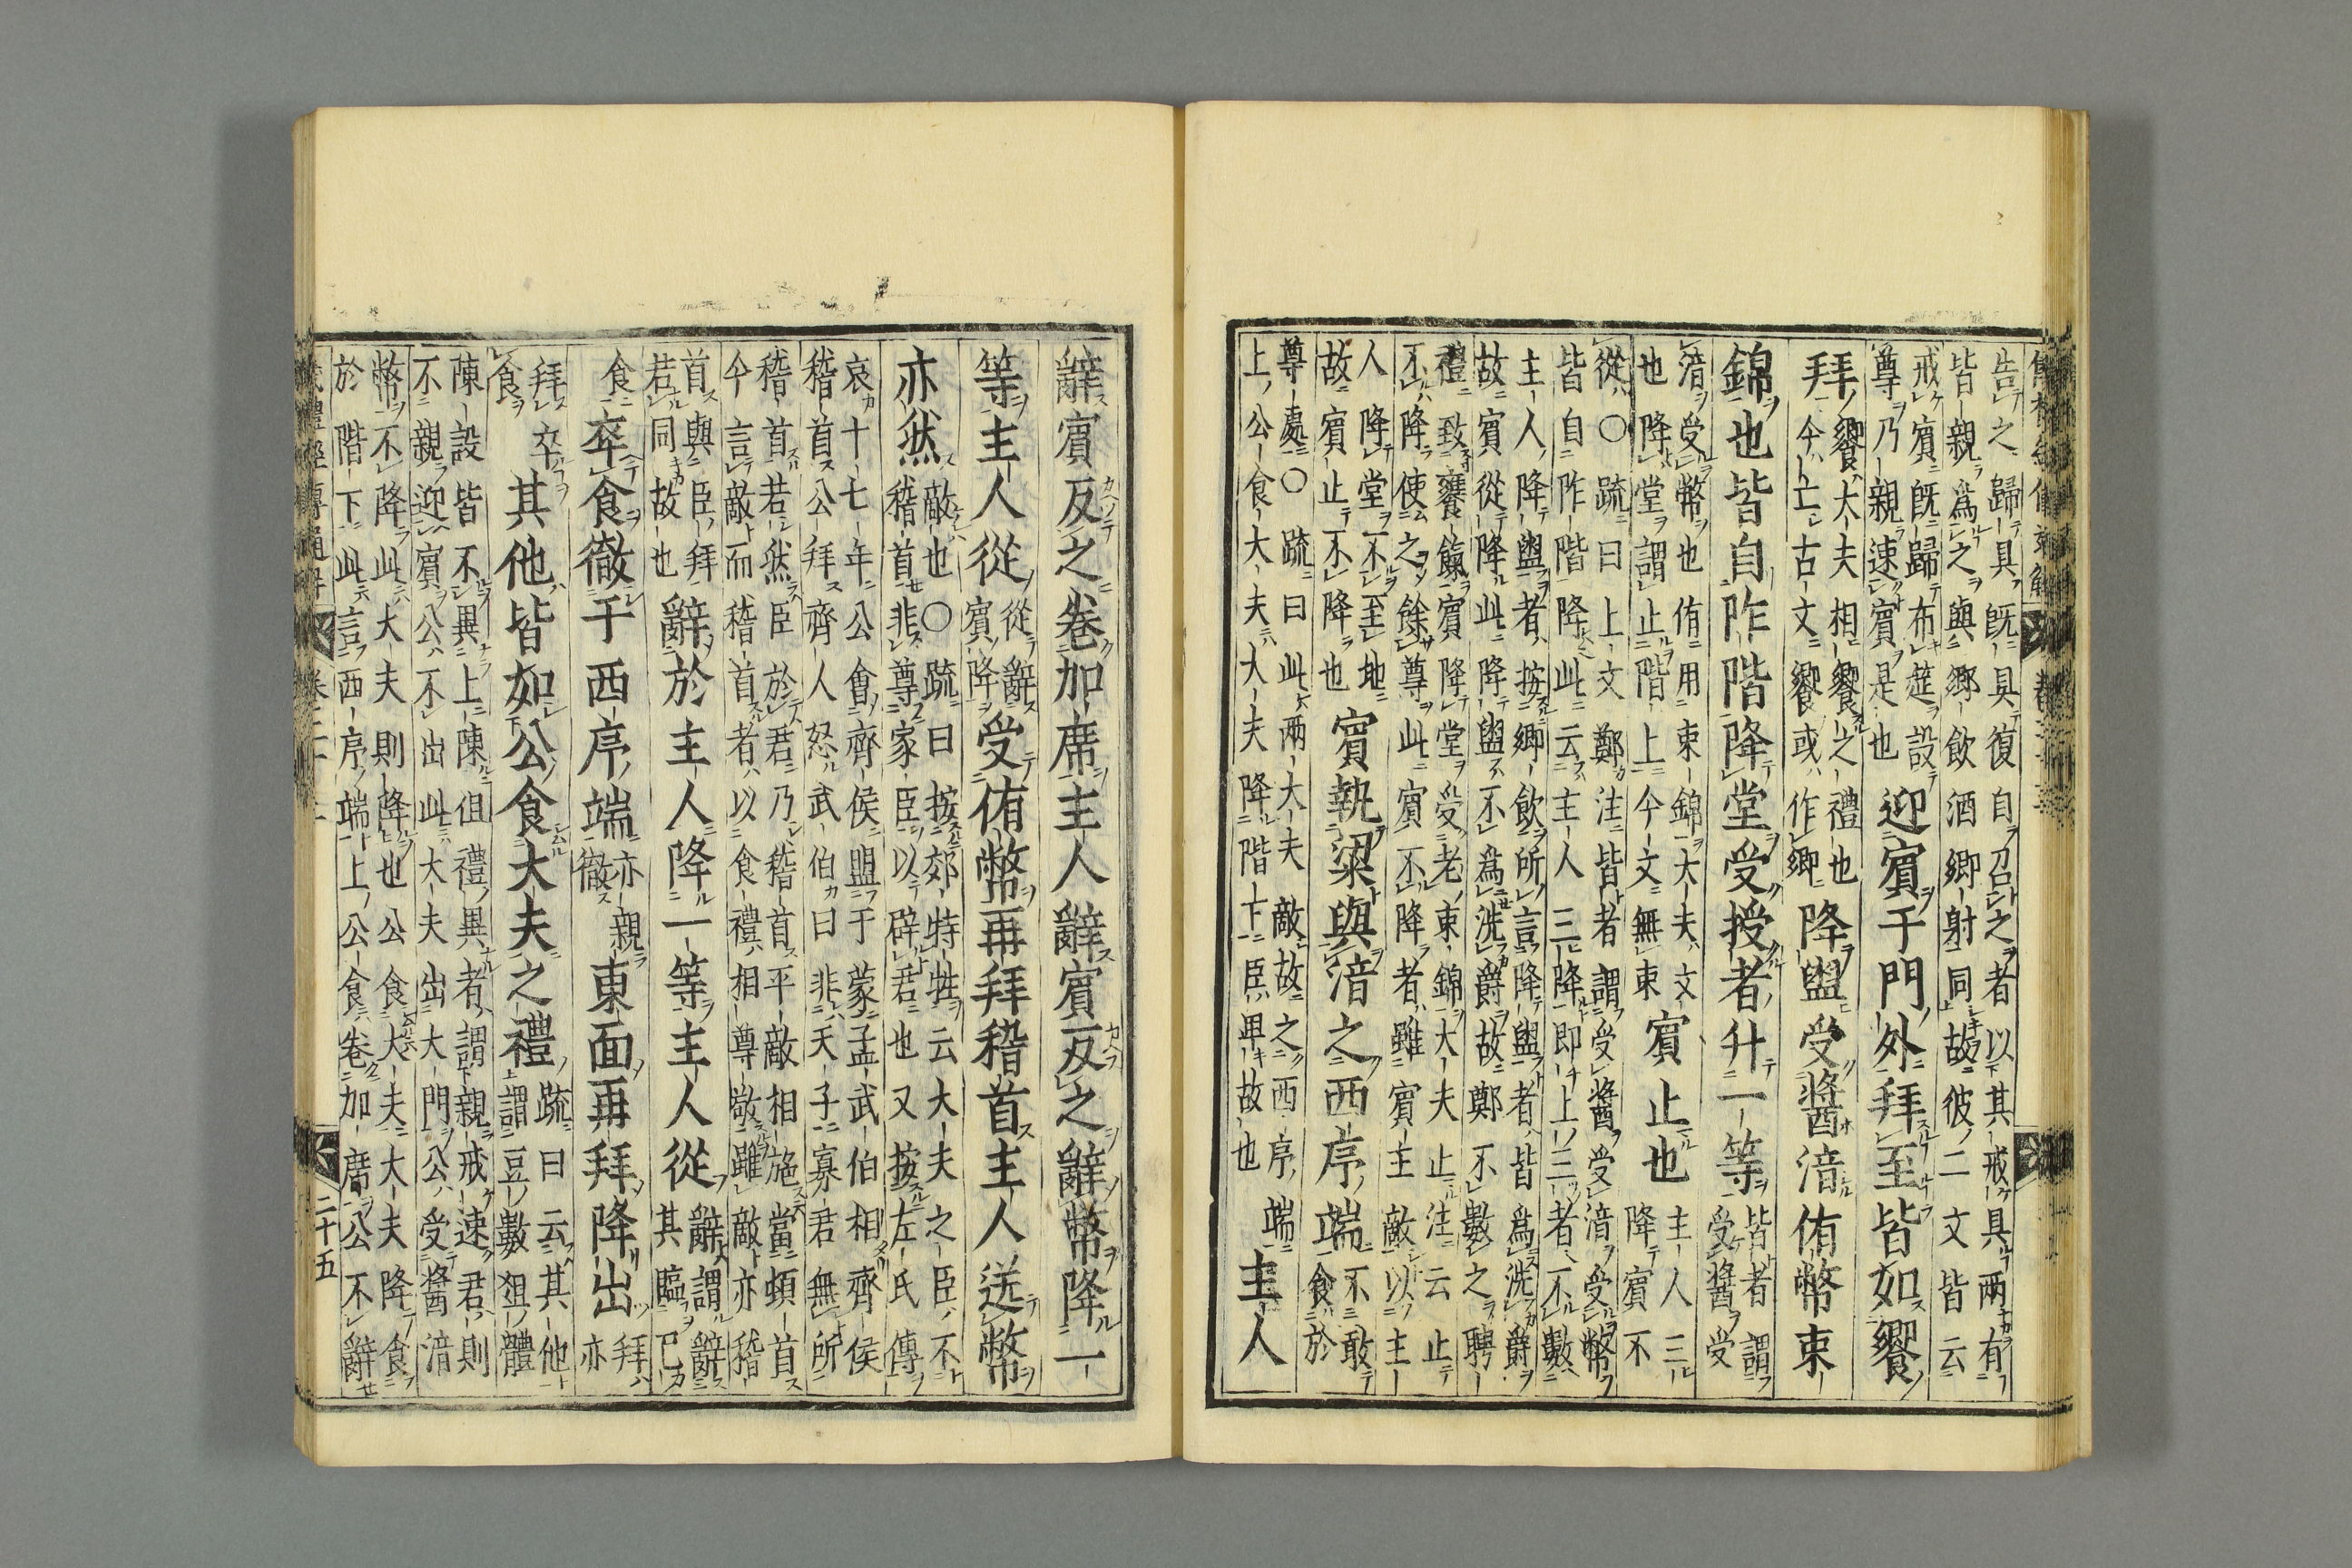 告之歸具既具復自召之者以其戒具兩有
皆親為之與鄉飲酒鄉射同故彼二文皆云
戒賓既歸布筵設
尊乃親速賓是也
迎賓于門外拜至皆如饗
拜
饗大夫相饗之禮也
今亡古文饗或作鄉
降盥受醬湆侑幣束
錦也皆自阼階降堂受授者升一等
皆者謂
受醬受
湆受幣也侑用束錦大夫文
也降堂謂止階上今文無束
賓止也
主人三
降賓不
從〇疏曰上文鄭注皆者謂受醬受湆受幣
皆自阼階降此云主人三降即上三者不數
主人降盥者按鄉飲所言降盥者皆為洗爵
故賓從降此降盥不為洗爵故鄭不數之聘
禮致饔餼賓降堂受老束錦大夫止注云止
不降使之餘尊此賓不降者雖賓主敵以主
人降堂不至地
故賓止不降也
賓執粱與湆之西序端
不敢
食於
尊處〇疏曰此兩大夫敵故之西序端
上公食大夫大夫降階下臣卑故也
主人
辭賓反之卷加席主人辭賓反之辭幣降一
等主人從
從辭
賓降
受侑幣再拜稽首主人送幣
亦然
敵也〇疏曰按郊特牲云大夫之臣不
稽首非尊家臣以辟君也又按左氏傳
哀十七年公會齊侯盟于蒙孟武伯相齊侯
稽首公拜齊人怒武伯曰非天子寡君無所
稽首若然臣於君乃稽首平敵相施當頓首
今言敵而稽首者以食禮相尊敬雖敵亦稽
首與臣拜
君同故也
辭於主人降一等主人從
辭謂辭
其臨已
食
卒食徹于西序端
亦親
徹
東面再拜降出
拜
亦
拜卒
食
其他皆如公食大夫之禮
疏曰云其他
謂豆數俎體
陳設皆不異上陳但禮異者謂親戒速君則
不親迎賓公不出此大夫出大門公受醬湆
幣不降此大夫則降也公食大夫大夫降食
於階下此言西序端上公食卷加席公不辭
二十五